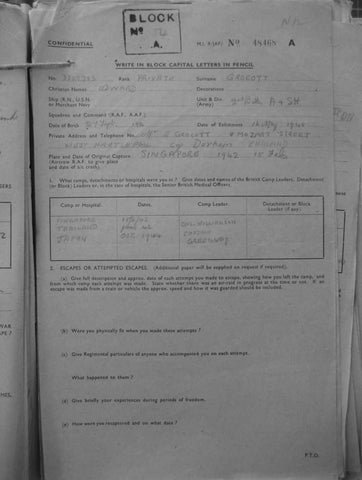 BLOCK
No
A.
CONFIDENTIAL
No 48468 A
WRITE IN BLOCK CAPITAL LETTERS IN PENCIL
No. Rank PRIVATE Surname GROCOTT
Christian Names EDWARD Decorations
Ship (R.N., U.S.N. or Merchant Navy Unit & Div. (Army) A & SH
Squadron and Command (R.A.F. A.A.F.)
Date of Birth Date of Enlistment
Private Address and Telephone No. GROCOTT MOZART STREET
WEST HARTLEPOOL Co DURHAM ENGLAND
Place and Date of Original Capture SINGAPORE 1942 15 Feb
(Aircrew R.A.F. to give place
and date of air crash).
1. What camps, detachments or hospitals were you in? Give dates and names of the British Camp Leaders, Detachment
(or Block) Leaders or, in the case of hospitals, the Senior British Medical Officers.
Camp or Hospital. Dates. Camp Leader. Detachment or Block Leader (if any).
SINGAPORE
THAILAND
JAPAN 1944
2. ESCAPES OR ATTEMPTED ESCAPES. (Additional paper will be supplied on request if required).
(a) Give full description and approx. date of each attempt you made to escape, showing how you left the camp, and
from which camp each attempt was made. State whether there was an air-raid in progress at the time or not. If an
escape was made from a train or vehicle the approx. speed and how it was guarded should be included.
(b) Were you physically fit when you made these attempts?
(c) Give Regimental particulars of anyone who accompanied you on each attempt.
What happened to them?
(d) Give briefly your experiences during periods of freedom.
(e) How were you recaptured and on what date?
P.T.O.